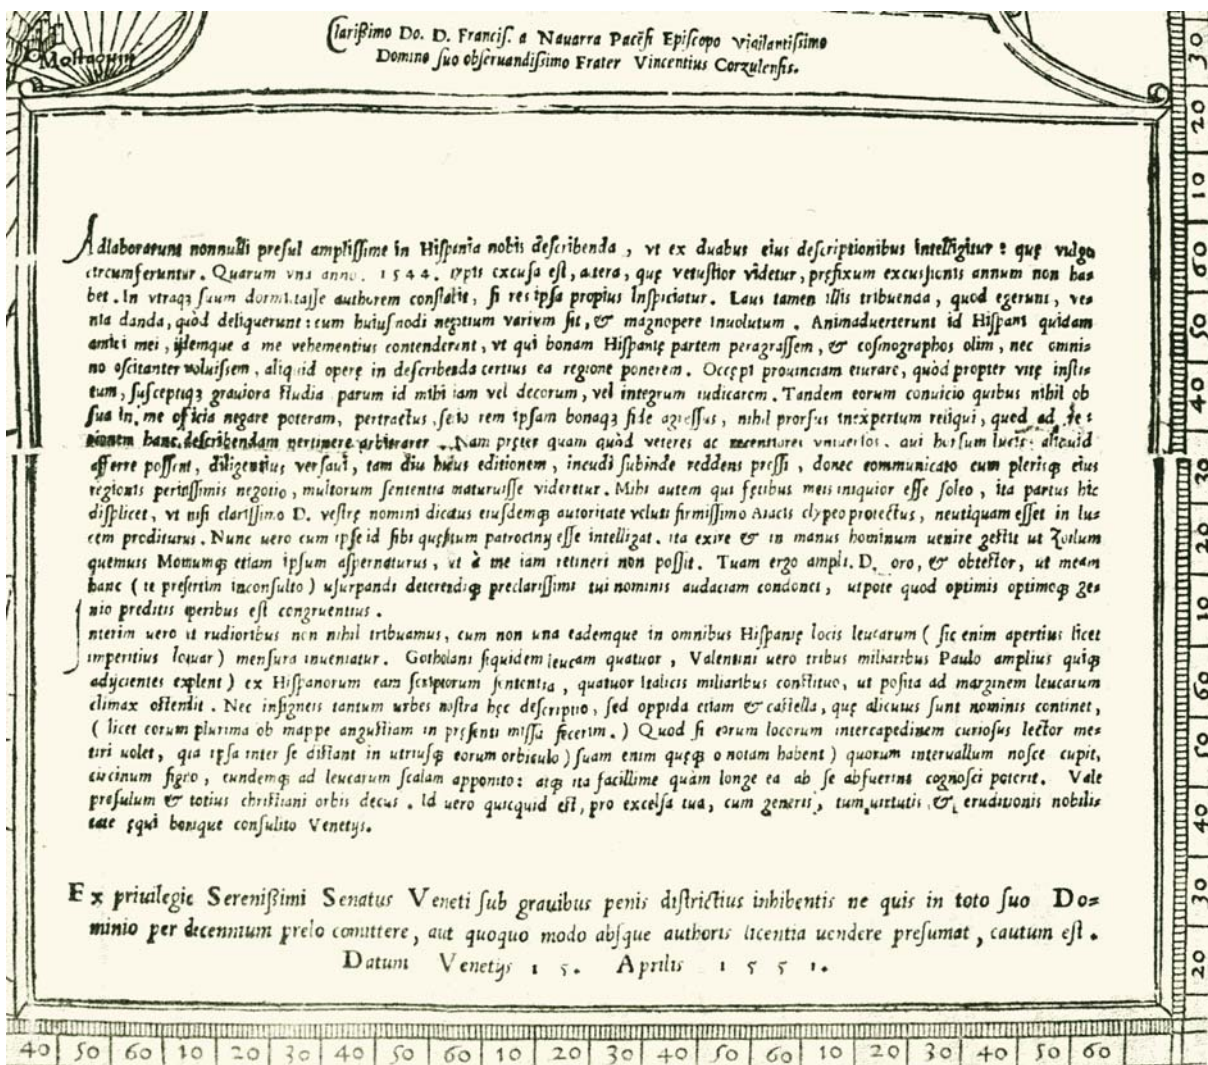 Mostaquin
Clarißimo Do. D. Francis. a Nauarra Pacēsi Episcopo vigilantissimo
Domino suo obseruandissimo Frater Vincentius Corzulensis.
Adlaborarunt nonnulli presul amplissime in Hispania nobis describenda, vt ex duabus eius descriptionibus intelligitur: quę vulgo
circumferuntur. Quarum vna anno. 1544. typis excusa est, altera, quę vetustior videtur, pręfixum excussionis annum non ha=
bet. In vtraqꝫ suum dormitasse authorem constabit, si res ipsa propius Inspiciatur. Laus tamen illis tribuenda, quod egerunt, ve=
nia danda, quòd deliquerunt: cum huiusmodi negotium varium sit, & magnopere inuolutum. Animaduerterunt id Hispani quidam
amici mei, ijdemque a me vehementius contenderunt, vt qui bonam Hispanię partem peragrassem, & cosmographos olim, nec omni=
no oscitanter uoluissem, aliquid operę in describenda certius ea regione ponerem. Occępi prouinciam eiurare, quòd propter vitę insti=
tum, susceptaqꝫ grauiora studia parum id mihi iam vel decorum, vel integrum iudicarem. Tandem eorum conuicio quibus nihil ob
sua in me officia negare poteram, pertractus, sedo rem ipsam bonaqꝫ fide agressus, nihil prorsus inexpertum reliqui, quod ad re=
gionem hanc describendam pertinere arbitrarer. Nam pręter quam quòd veteres ac recentiores vniuersos, qui horsum lucis aliquid
afferre possent, diligentius versaui, tam diu huius editionem, incudi subinde reddens pressi, donec communicato cum plerisqꝫ eius
regionis peritissimis negotio, multorum sententia maturuisse videretur. Mihi autem qui fętibus meis iniquior esse soleo, ita partus hic
displicet, vt nisi clarissimo D. vestrę nomini dicatus eiusdemqꝫ autoritate veluti firmissimo Aiacis clypeo protectus, neutiquam esset in lu=
cem proditurus. Nunc uero cum ipse id sibi quęsitum patrocinij esse intelligat. ita exire & in manus hominum uenire gestit ut Zoilum
quemuis Momumqꝫ etiam ipsum aspernaturus, ut à me iam retineri non possit. Tuam ergo ampli. D. oro, & obtestor, ut meam
hanc (te presertim inconsulto) usurpandi deterendiqꝫ preclarissimi tui nominis audaciam condonet, utpote quod optimis optimoqꝫ ge=
nio preditis operibus est congruentius.
Interim uero ut rudioribus non nihil tribuamus, cum non una eademque in omnibus Hispanię locis leucarum (sic enim apertius licet
imperitius loquar) mensura inueniatur. Gotholani siquidem leucam quatuor, Valentini uero tribus miliaribus Paulo amplius quiqꝫ
adijcientes explent) ex Hispanorum eam scriptorum sententia, quatuor Italicis miliaribus constituo, ut posita ad marginem leucarum
climax ostendit. Nec insigneis tantum urbes nostra hęc descriptio, sed oppida etiam & castella, quę alicuius sunt nominis continet,
(licet eorum plurima ob mappe angustiam in pręsenti missa fecerim.) Quod si eorum locorum intercapedinem curiosus lector me=
tiri uolet, qua ipsa inter se distant in utriusqꝫ eorum orbiculo) suam enim quęqꝫ o notam habent) quorum interuallum nosce cupit,
circinum figito, eundemqꝫ ad leucarum scalam apponito: atqꝫ ita facillime quàm longe ea ab se abfuerint cognosci poterit. Vale
presulum & totius christiani orbis decus. Id uero quicquid est, pro excelsa tua, cum generis, tum uirtutis, & eruditionis nobili=
tate ęqui bonique consulito Venetijs.
Ex priuilegio Serenißimi Senatus Veneti sub grauibus penis districtius inhibentis ne quis in toto suo Do=
minio per decennium prelo comittere, aut quoquo modo absque authoris licentia uendere presumat, cautum est.
Datum Venetijs 15. Aprilis 1551.
30
20
10
60
50
40
30
20
10
60
50
40
30
20
40 50 60 10 20 30 40 50 60 10 20 30 40 50 60 10 20 30 40 50 60